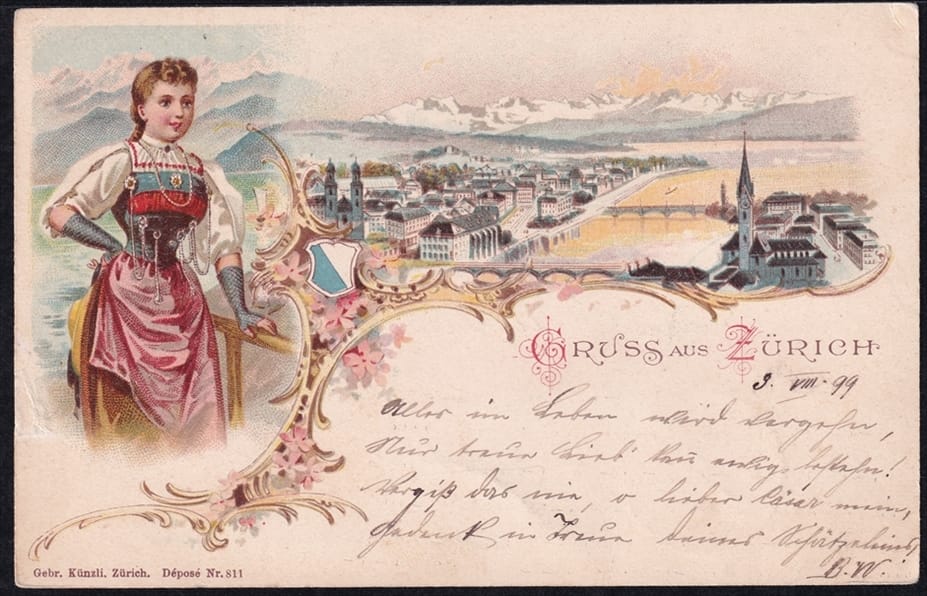 GRUSS AUS ZÜRICH
3. VIII. 99
Alles im Leben wird vergehn,
Nur treue Lieb' kan ewig bestehn!
Vergiß das nie, o lieber Cäsar mein,
Gedenk in Treue deines Schätzeleins
B.W.
Gebr. Künzli. Zürich. Déposé Nr. 811